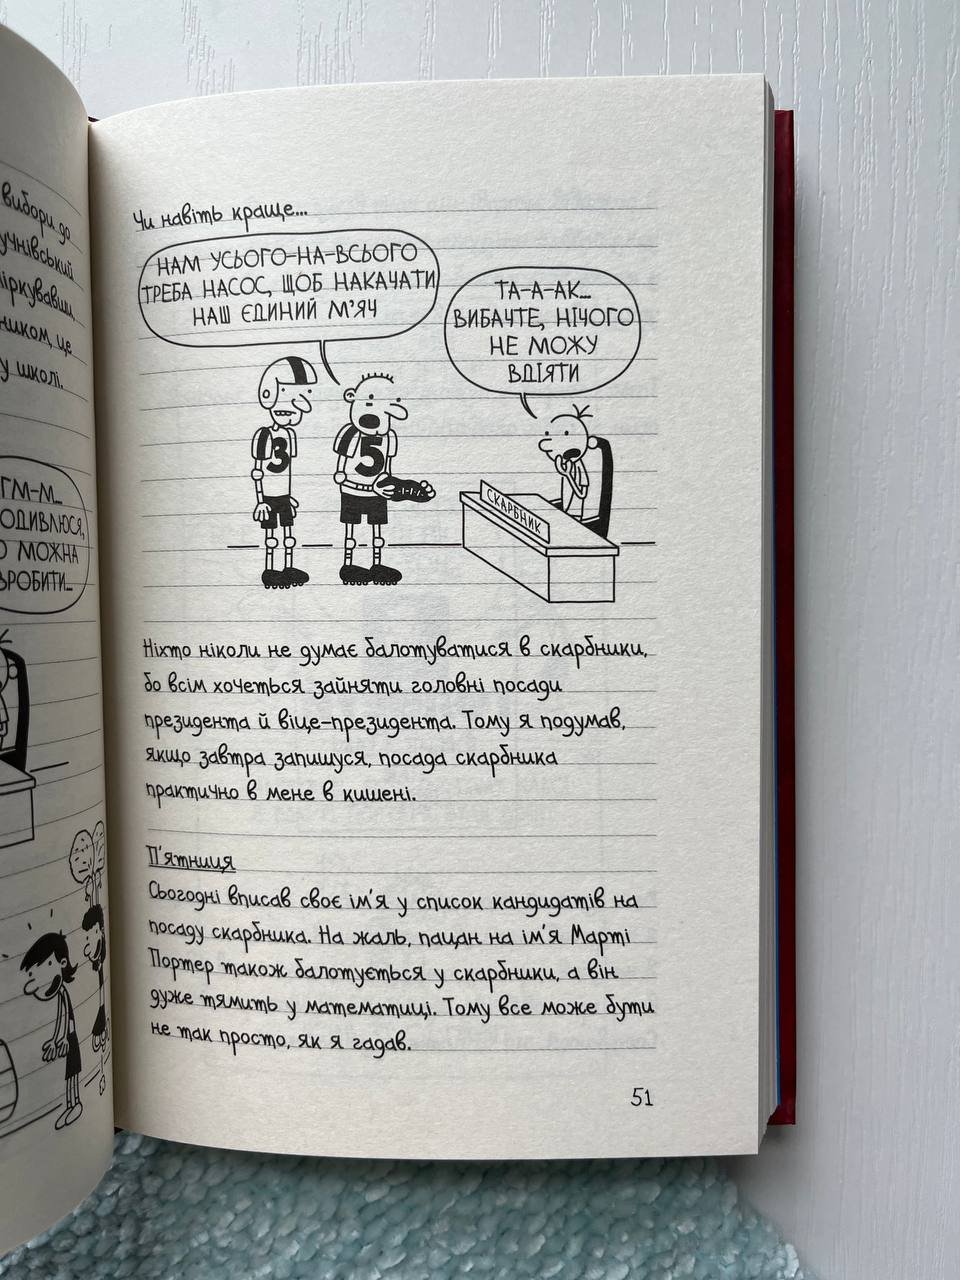 вибори до
учнівський
ником, це
у школі.
ГМ-М...
МОЖНА
Чи навіть краще...
НАМ УСЬОГО-НА-ВСЬОГО
ТРЕБА НАСОС, ЩОБ НАКАЧАТИ
НАШ ЄДИНИЙ М'ЯЧ
ТА-А-АК...
ВИБАЧТЕ, НІЧОГО
НЕ МОЖУ
ВДІЯТИ
3
5
СКАРБНИК
Ніхто ніколи не думає балотуватися в скарбники,
бо всім хочеться зайняти головні посади
президента й віце-президента. Тому я подумав,
якщо завтра запишуся, посада скарбника
практично в мене в кишені.
П'ятниця
Сьогодні вписав своє ім'я у список кандидатів на
посаду скарбника. На жаль, пацан на ім'я Марті
Портер також балотується у скарбники, а він
дуже тямить у математиці. Тому все може бути
не так просто, як я гадав.
51